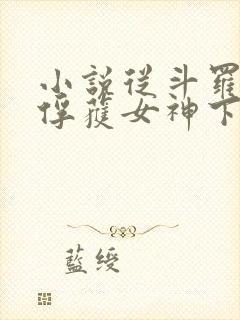 小說從斗羅
俘獲女神下
藍綬